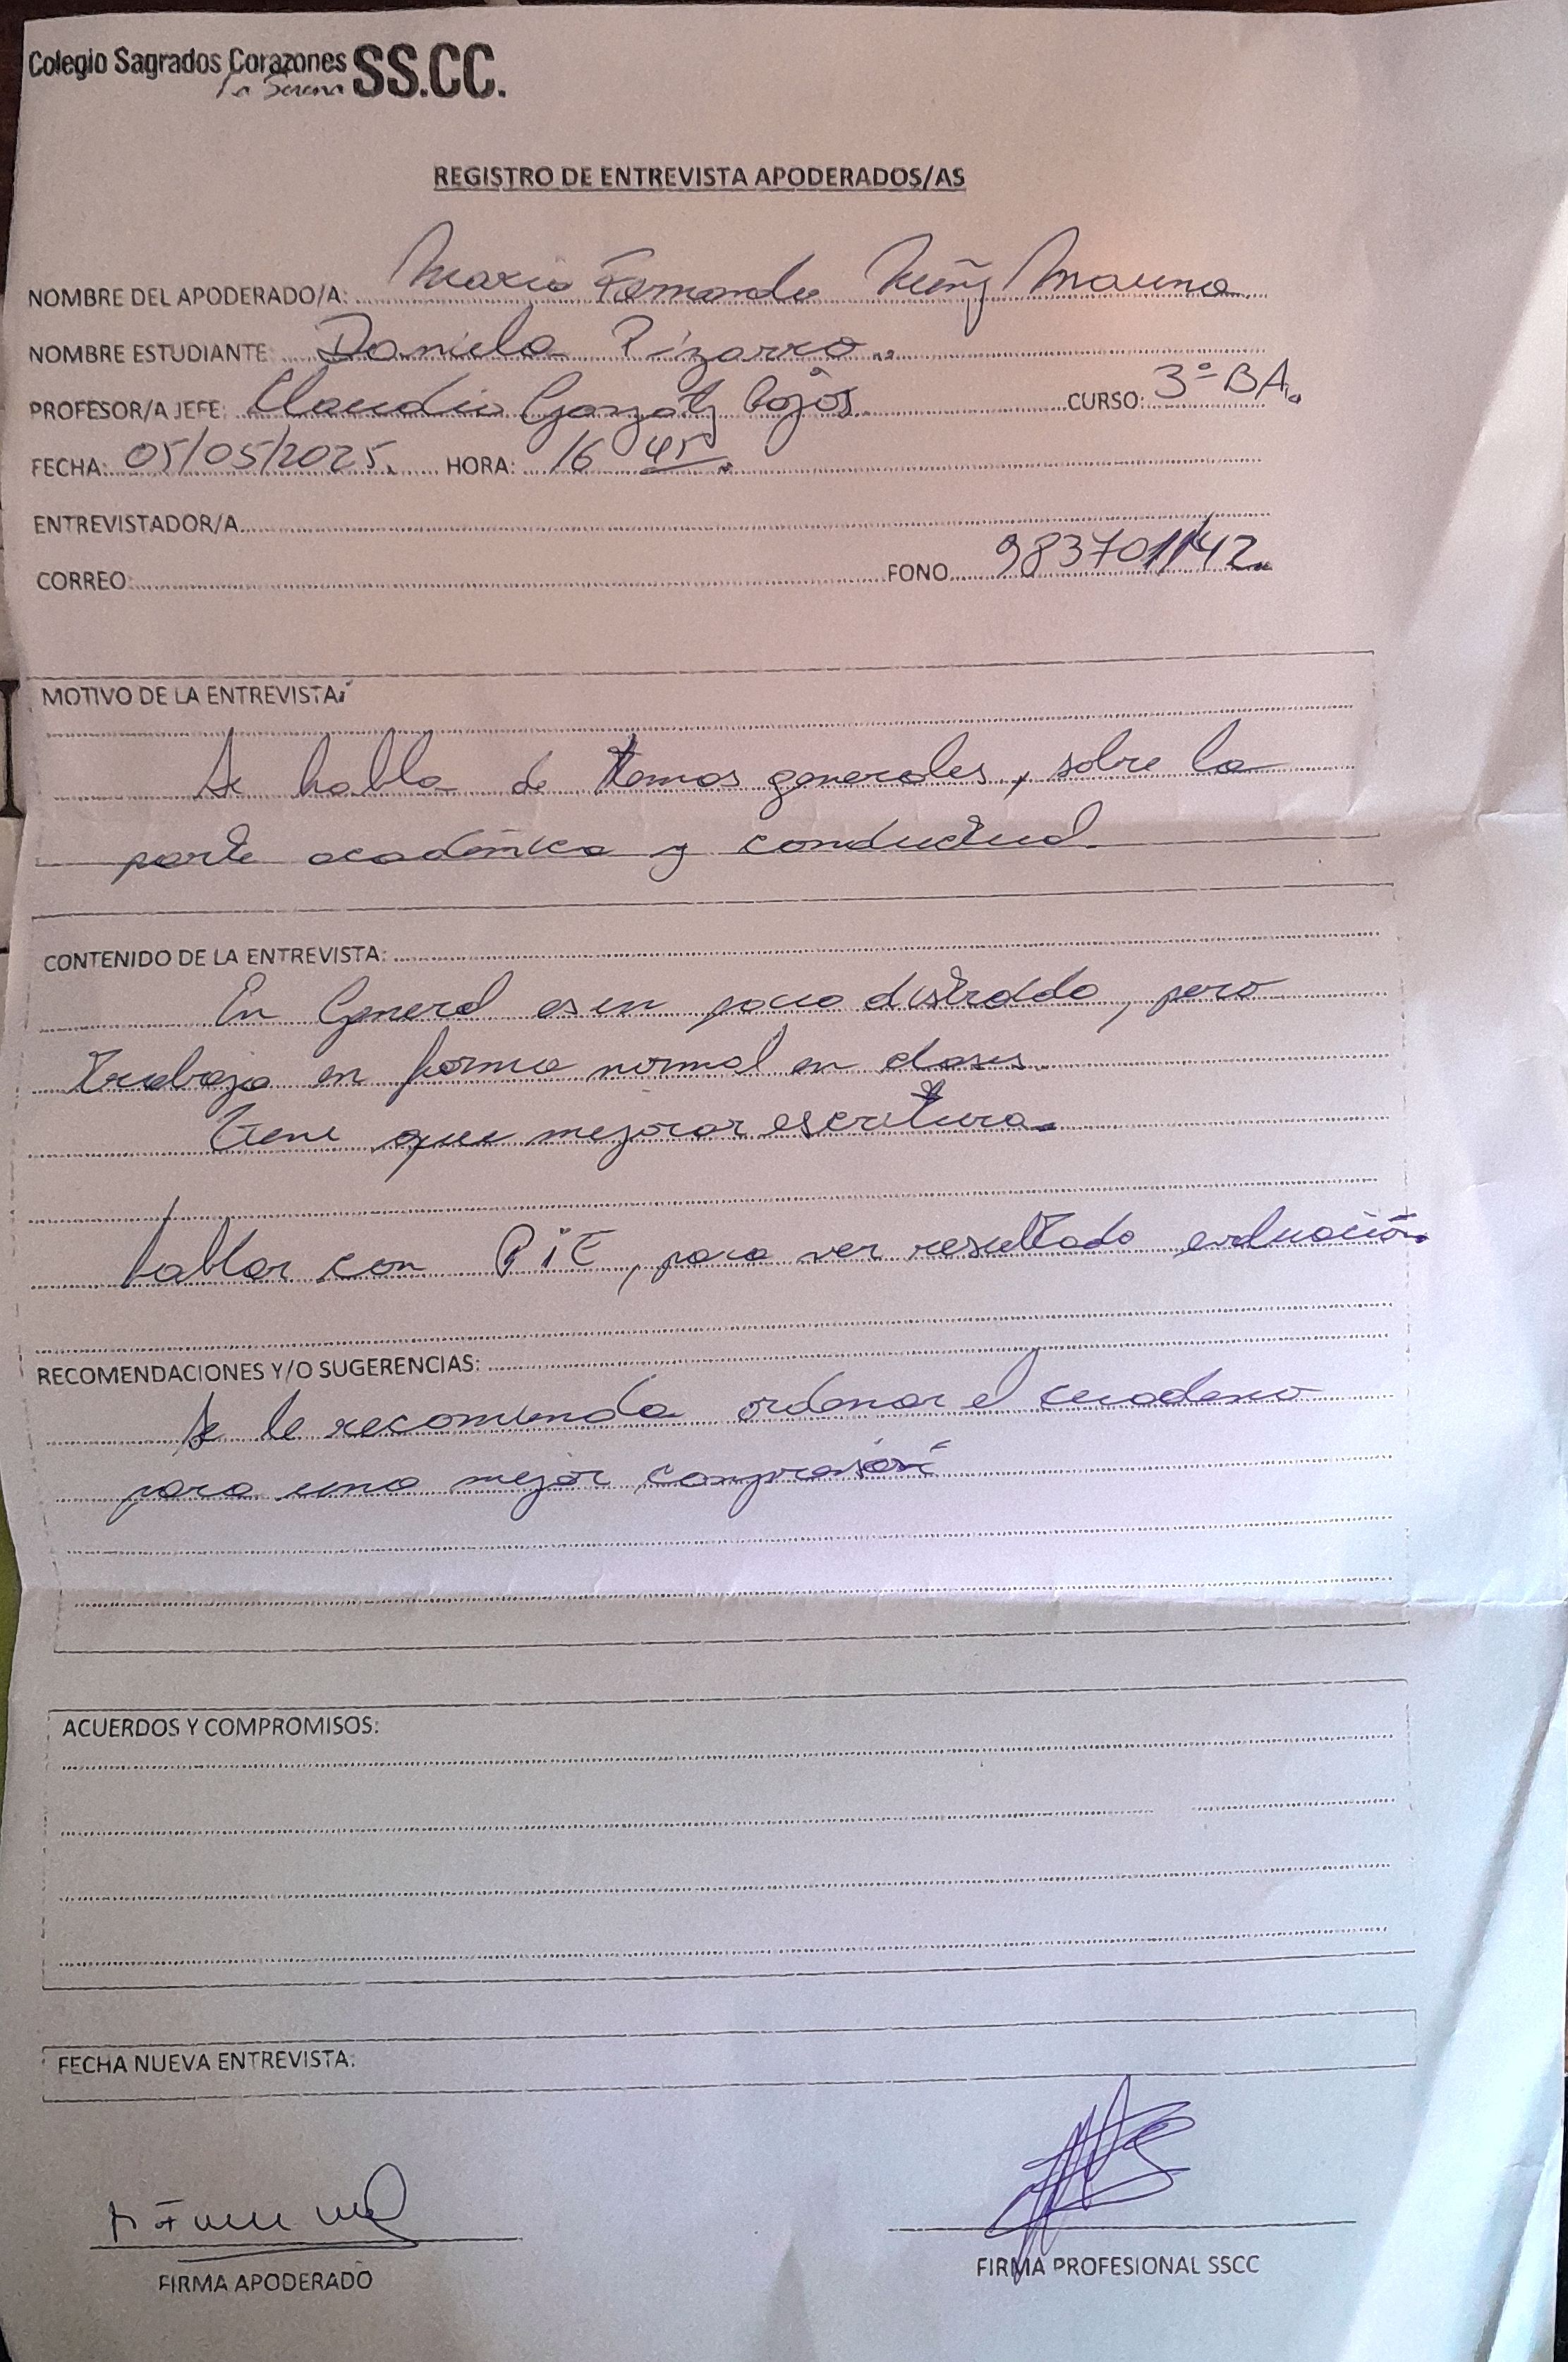 Colegio Sagrados Corazones SS.CC.
La Serena
REGISTRO DE ENTREVISTA APODERADOS/AS
NOMBRE DEL APODERADO/A: Maria Fernanda Núñez
NOMBRE ESTUDIANTE: Daniela Pizarro.
PROFESOR/A JEFE: Claudio González Rojos. CURSO: 3º BA.
FECHA: 05/05/2025. HORA: 16 45.
ENTREVISTADOR/A
CORREO: FONO 983701142.
MOTIVO DE LA ENTREVISTA:
Se habla de temas generales, sobre la
parte académica y conductual.
CONTENIDO DE LA ENTREVISTA:
En General es un poco distraida, pero
trabaja en forma normal en clases.
Tiene que mejorar escritura.
hablar con PIE, para ver resultado evaluación.
RECOMENDACIONES Y/O SUGERENCIAS:
Se le recomienda ordenar el cuaderno
para una mejor
ACUERDOS Y COMPROMISOS:
FECHA NUEVA ENTREVISTA:
FIRMA APODERADO
FIRMA PROFESIONAL SSCC